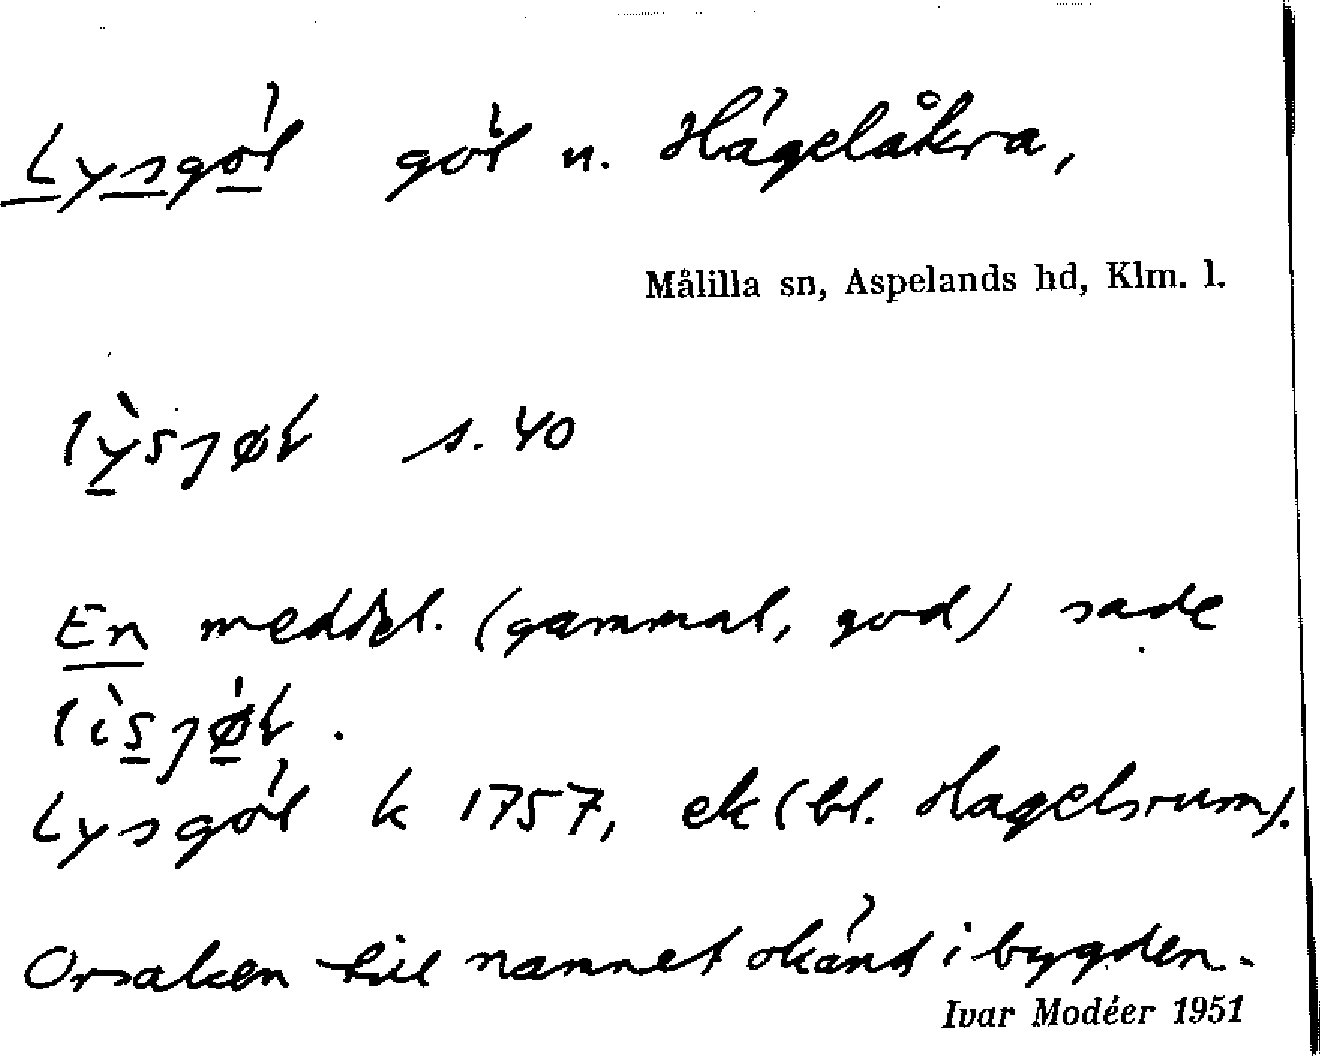 Lysgöl göl n. Hägelåkra,
Målilla sn, Aspelands hd, Klm. l.
lỳsjøɫ s. 40
En meddel. (gammal, god) sade
lìsjø̀ɫ.
Lysgöl k 1757, ek (bl. Hagelsrum).
Orsaken till namnet okänd i bygden.
Ivar Modéer 1951